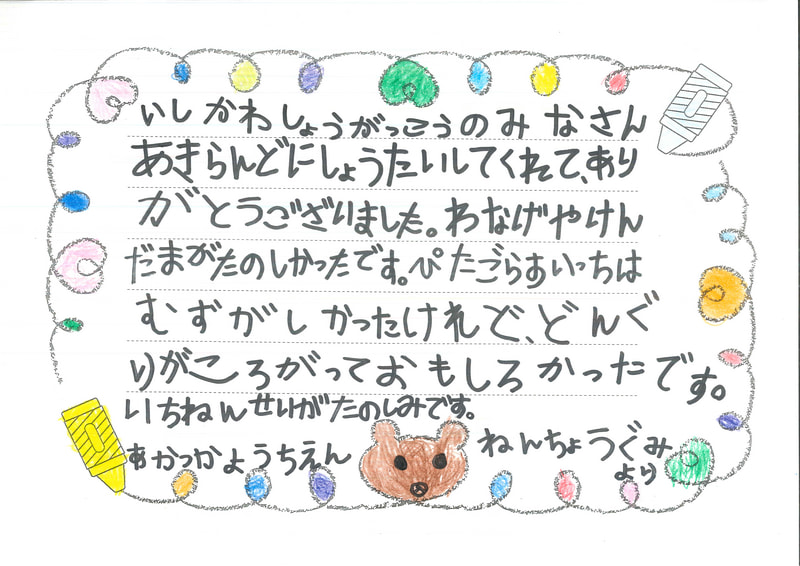 いしかわしょうがっこうのみなさん
あきらんどにしょうたいしてくれて、あり
がとうございました。わなげやけん
だまがたのしかったです。ぴたごらすいっちは
むずがしかったけれど、どんぐ
りがころがっておもしろかったです。
いちねんせいがたのしみです。
あかっかようちえん ねんちょうぐみ
より